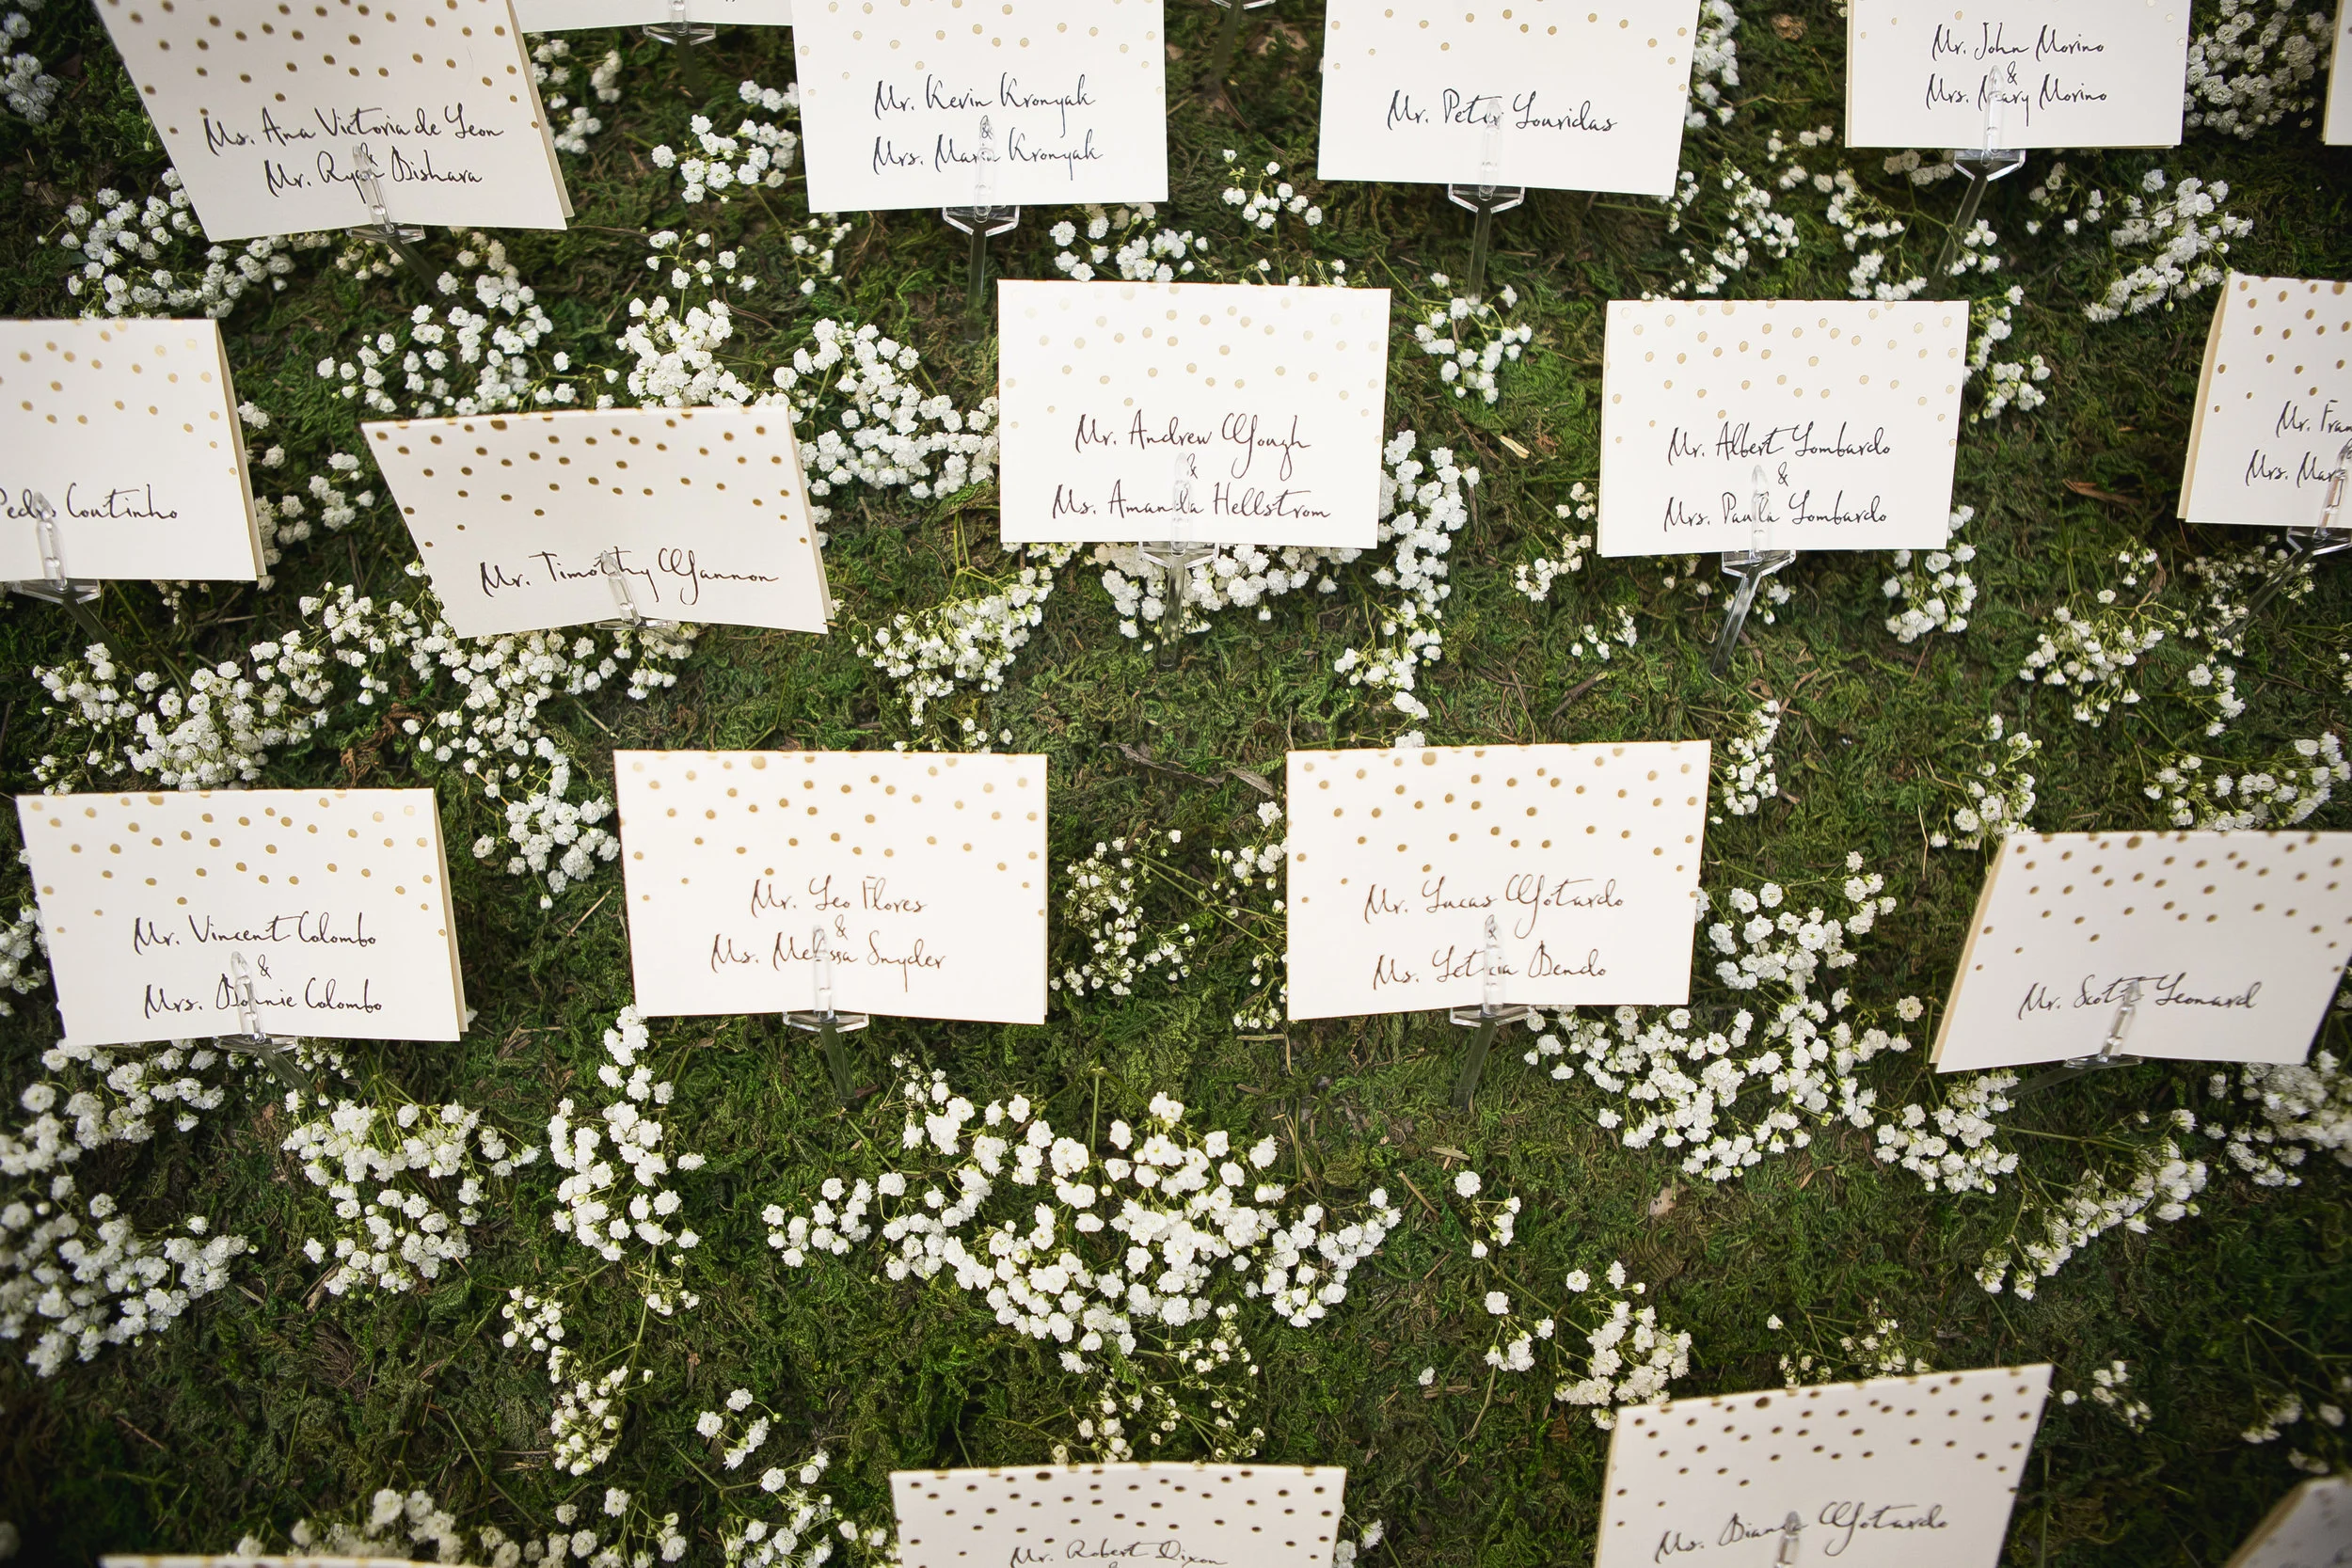 Ms. Ana Victoria de Leon
&
Mr. Ryan Bishara
Mr. Kevin Kronyak
&
Mrs. Maria Kronyak
Mr. Peter Louridas
Mr. John Morino
&
Mrs. Mary Morino
Pedro Coutinho
Mr. Timothy Gannon
Mr. Andrew Gough
&
Ms. Amanda Hellstrom
Mr. Albert Lombardo
&
Mrs. Paula Lombardo
Mr.
Mrs.
Mr. Vincent Colombo
&
Mrs. Bonnie Colombo
Mr. Leo Flores
&
Ms. Melissa Snyder
Mr. Lucas Gotardo
&
Ms. Leticia Bendo
Mr. Scott Leonard
Mr. Robert Dixon
Ms. Diana Gotardo